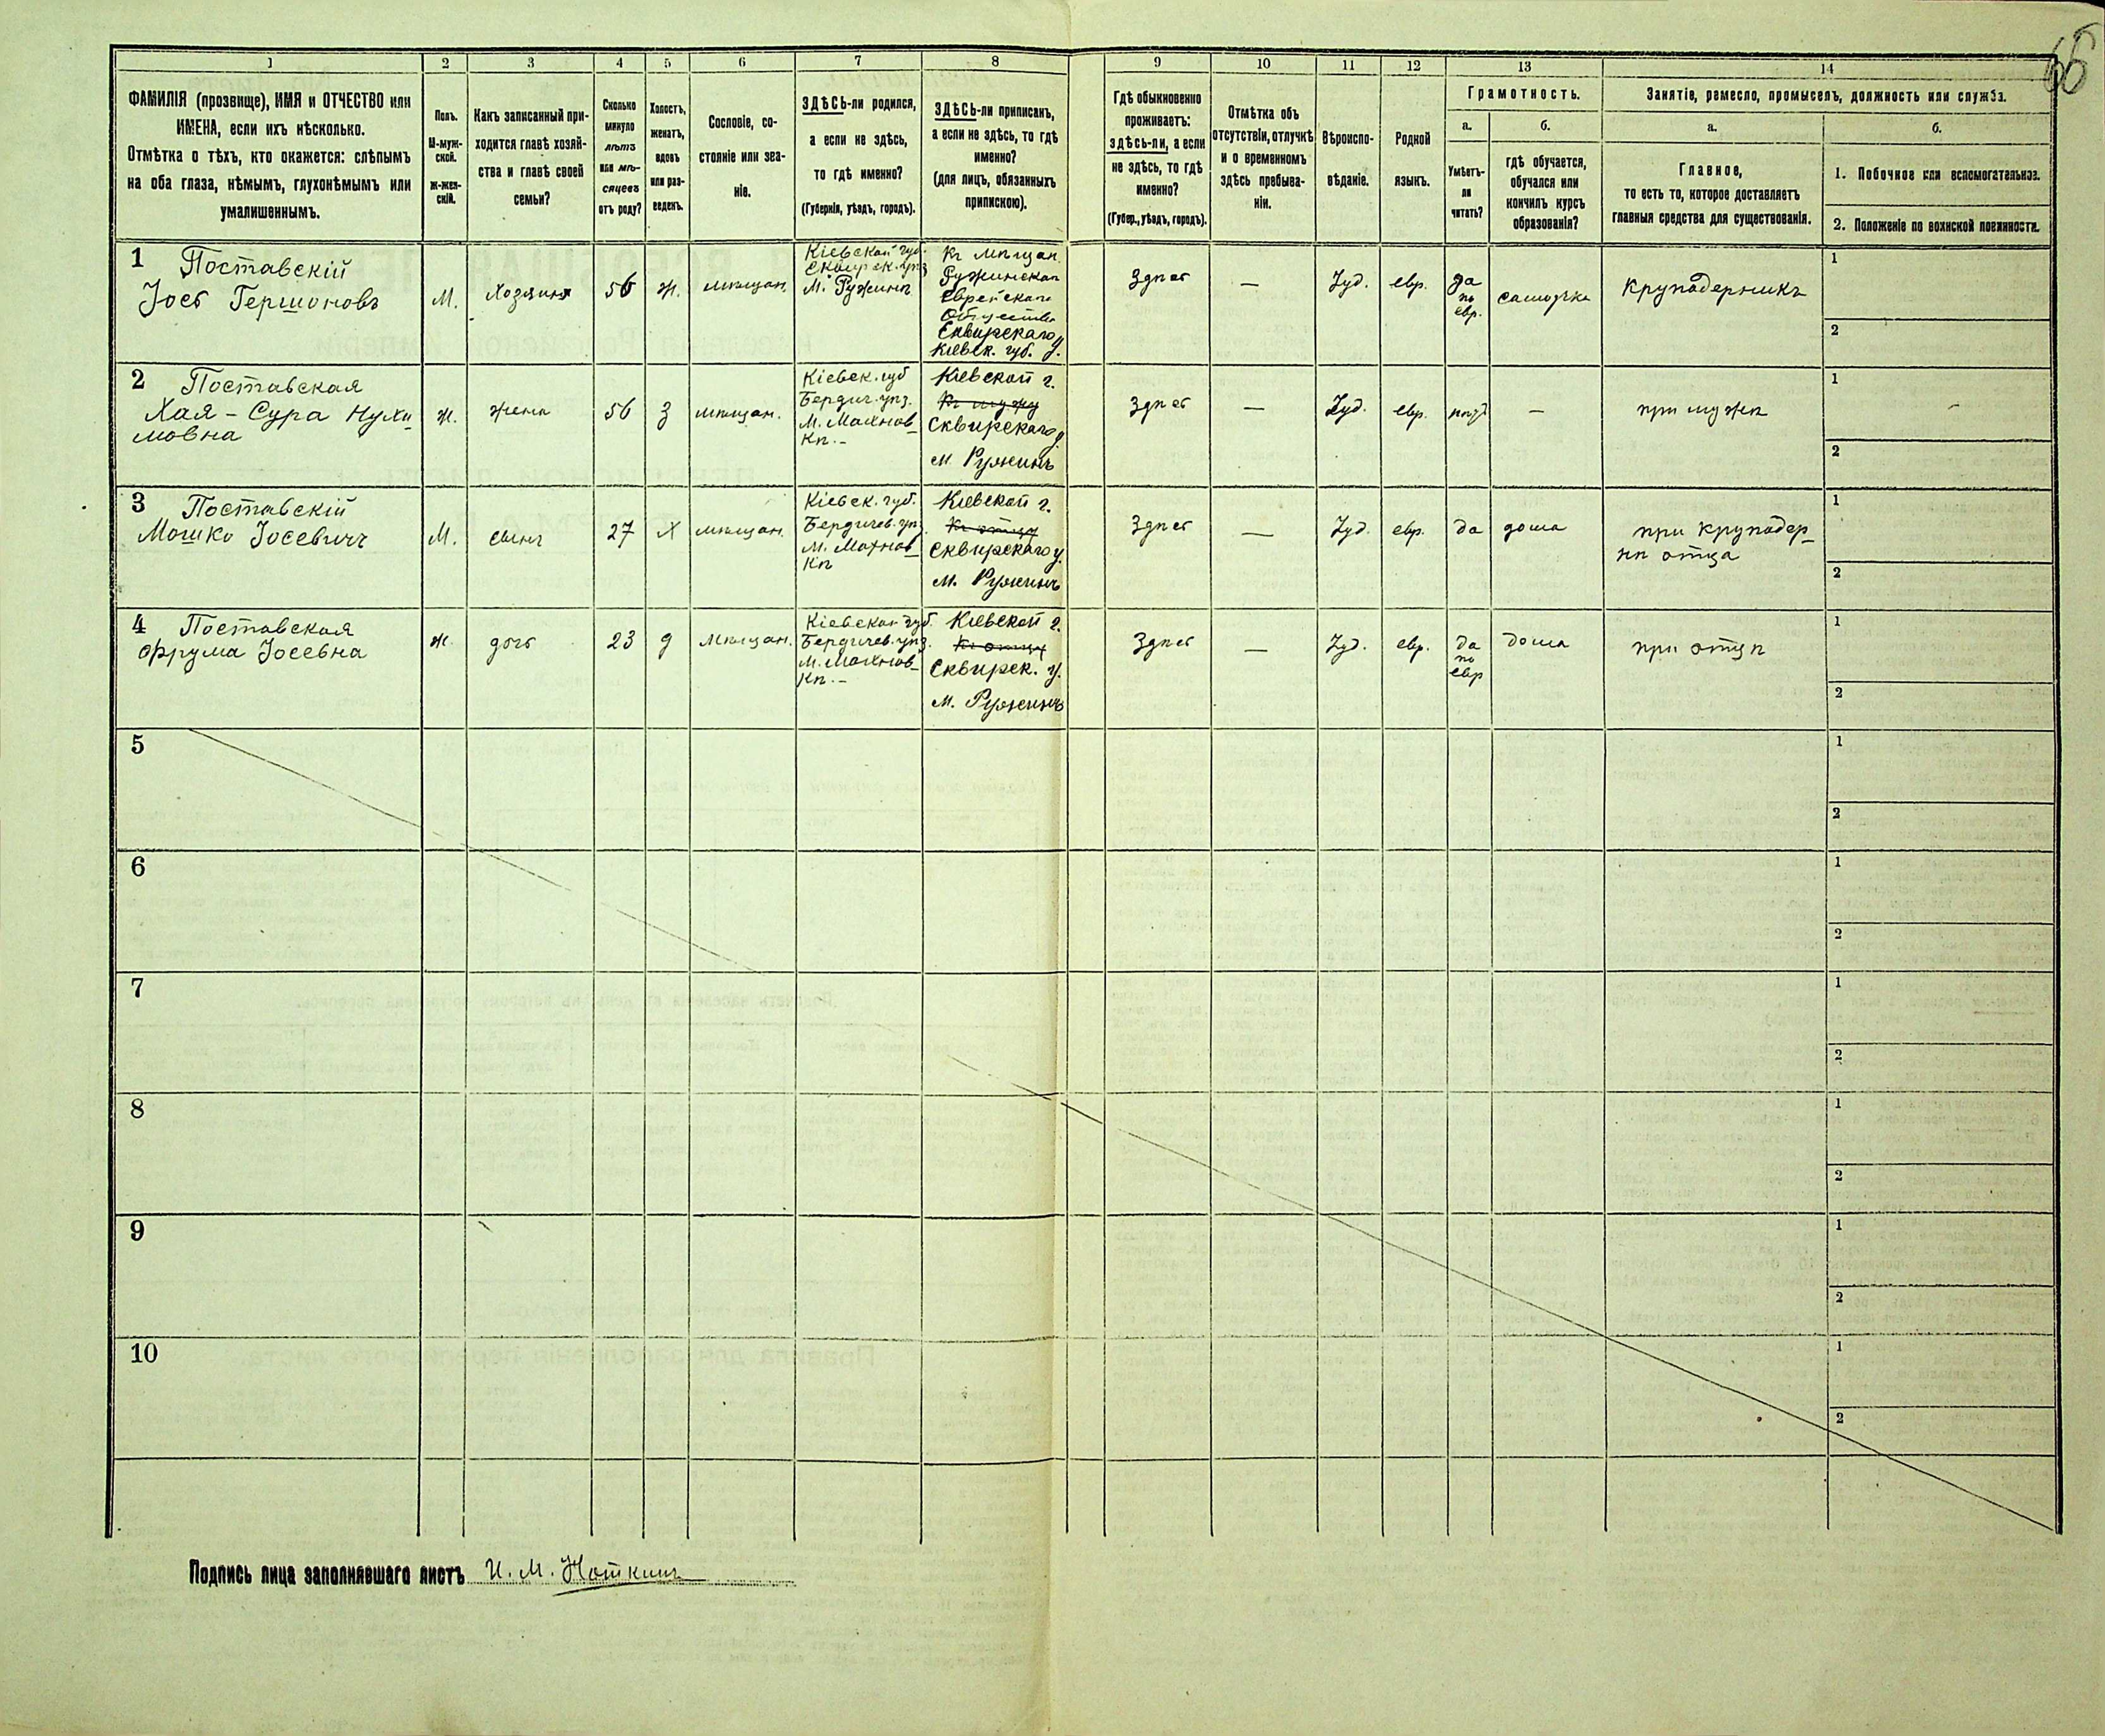 66
1 2 3 4 5 6 7 8 9 10 11 12 13 14
ФАМИЛІЯ (прозвище), ИМЯ и ОТЧЕСТВО или
ИМЕНА, если ихъ нѣсколько.
Отмѣтка о тѣхъ, кто окажется: слѣпымъ
на оба глаза, нѣмымъ, глухонѣмымъ или
умалишеннымъ.
Полъ.
М-муж-
ской.
ж-жен-
скій.
Какъ записанный при-
ходится главѣ хозяй-
ства и главѣ своей
семьи?
Сколько
минуло
лѣтъ
или мѣ-
сяцевъ
отъ роду?
Холостъ,
женатъ,
вдовъ
или раз-
веденъ.
Сословіе, со-
стояніе или зва-
ніе.
ЗДѢСЬ-ли родился,
а если не здѣсь,
то гдѣ именно?
(Губернія, уѣздъ, городъ).
ЗДѢСЬ-ли приписанъ,
а если не здѣсь, то гдѣ
именно?
(для лицъ, обязанныхъ
припискою).
Гдѣ обыкновенно
проживаетъ:
здѣсь-ли, а если
не здѣсь, то гдѣ
именно?
(Губер., уѣздъ, городъ).
Отмѣтка объ
отсутствіи, отлучкѣ
и о временномъ
здѣсь пребыва-
ніи.
Вѣроиспо-
вѣданіе.
Родной
языкъ.
Грамотность.
а.
б.
Умѣетъ-
ли
читать?
гдѣ обучается,
обучался или
кончилъ курсъ
образованія?
Занятіе, ремесло, промыселъ, должность или служба.
а.
б.
Главное,
то есть то, которое доставляетъ
главныя средства для существованія.
1. Побочное или вспомогательное.
2. Положеніе по воинской повинности.
1 Поставскій
Іосъ Гершоновъ
М.
Хозяинъ
56
ж.
мѣщан.
Кіевской губ.
Сквирск. уѣз
М. Ружинѣ
Къ мѣщан.
Ружинскаго
Еврейскаго
Общества
Сквирскаго у.
Кіевск. губ.
Здѣсь
—
Іуд.
евр.
да
по
евр.
самоучка
Крупадерникъ
1
2
2 Поставская
Хая-Сура Нухи
мовна
ж.
жена
56
З
мѣщан.
Кіевск. губ
Бердич. уѣз.
М. Махнов-
кѣ.-
Кіевской г.
Къ мужу
Сквирскаго у.
м. Ружинъ
Здѣсь
—
Іуд.
евр.
нѣт
—
при мужѣ
1
2
3 Поставскій
Мошко Іосевичъ
М.
сынъ
27
Х
мѣщан.
Кіевск. губ.
Бердичев. уѣз.
М. Махнов-
кѣ
Кіевской г.
Къ отцу
Сквирскаго у.
м. Ружинъ
Здѣсь
—
Іуд.
евр.
да
дома
при Крупадер-
нѣ отца
1
2
4 Поставская
Фрума Іосевна
ж.
дочь
23
д
мѣщан.
Кіевской губ.
Бердичев. уѣз.
М. Махнов-
кѣ.-
Кіевской г.
Къ отцу
Сквирск. у.
м. Ружинъ
Здѣсь
—
Іуд.
евр.
да
по
евр
дома
при отцѣ
1
2
5
1
2
6
1
2
7
1
2
8
1
2
9
1
2
10
1
2
Подпись лица заполнявшаго листъ И. М. Ноткинъ